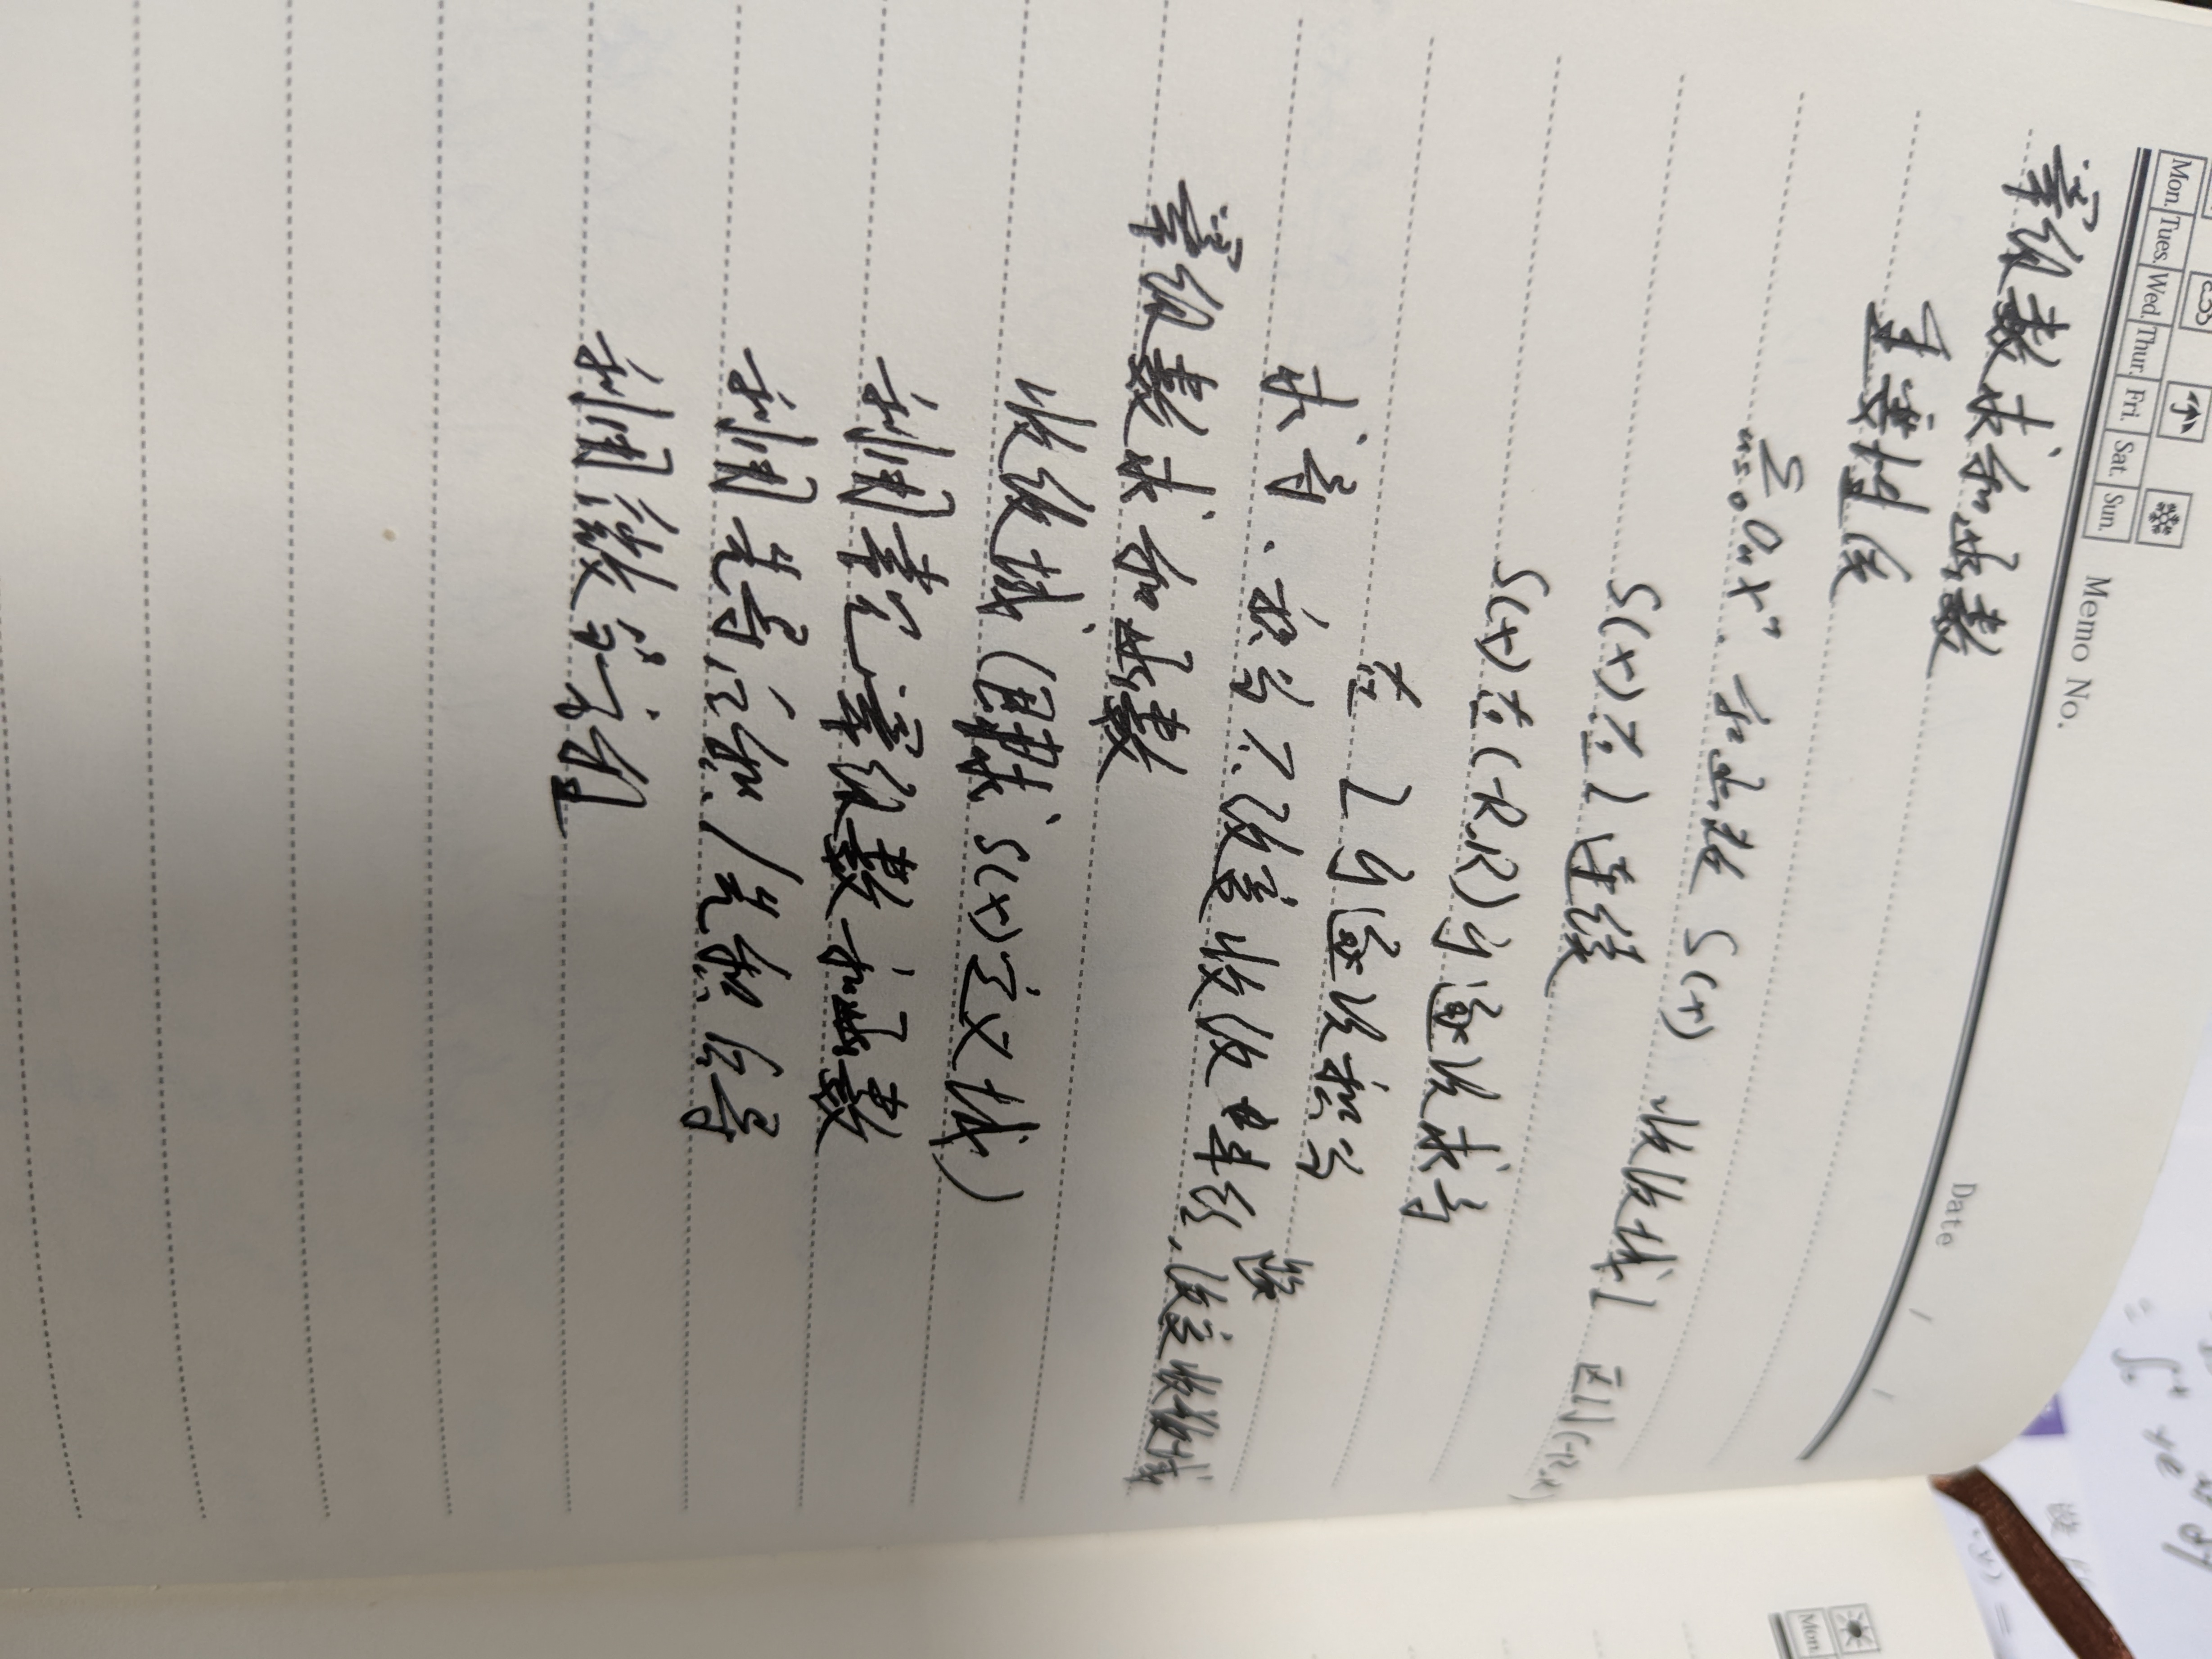 Mon. Tues. Wed. Thur. Fri. Sat. Sun.
Memo No.
Date / /
幂级数求和函数
主要性质
∑ n=0 aₙxⁿ. 和函数 S(x) 收敛域 I 区间(-R,R)
S(x) 在 I 连续
S(x) 在(-R,R)内逐次求导
在 I 内逐次积分
求导.积分不改变收敛半径,改变收敛域
幂级数求和函数
收敛域(即求 S(x)定义域)
利用常见幂级数和函数
利用先导后积/先积后导
利用微分方程
Mon